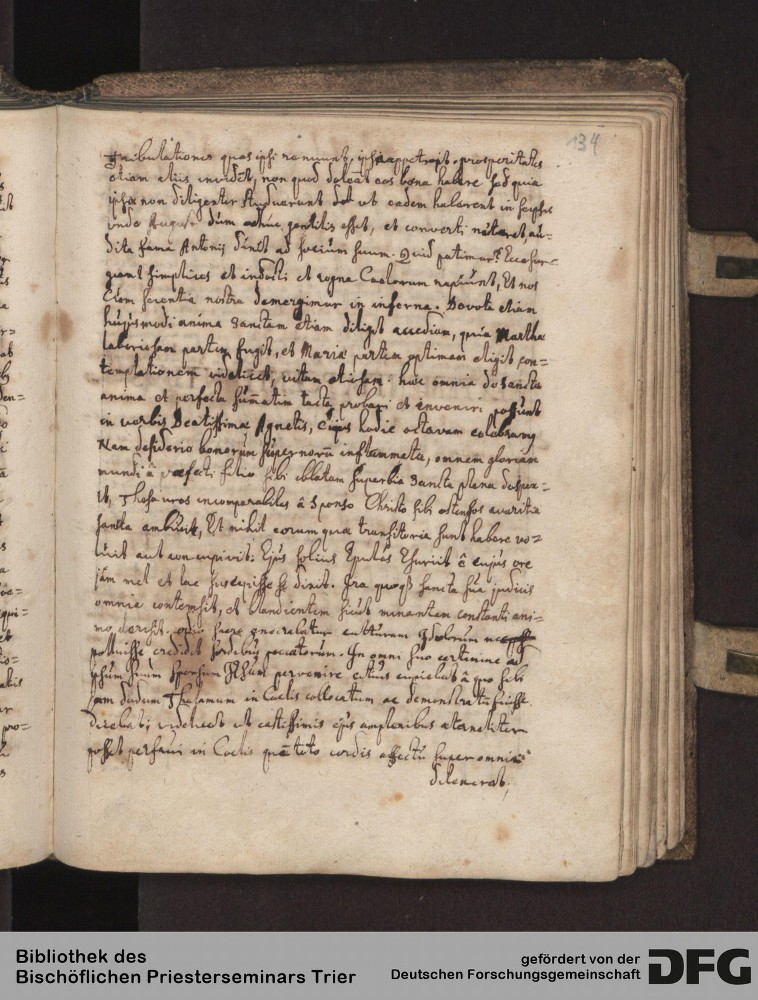 134
Tribulationes quas ipsi renuunt, ipsa appetivit. prosperitates
etiam aliis invidet, non quod doleat eos bona habere sed quia
ipsi non diligenter studuerunt ut eadem haberent in seipsis
unde August. dum adhuc gentilis esset, et converti au=
dita fama Antonij dixit ad socium suum. Quid patimur? Ecce sur=
gunt simplices et indocti et regna Caelorum rapiunt, Et nos
Cum scientia nostra demergimur in inferna. Devota etiam
hujusmodi anima sanctam etiam diligit accediam, quia Martha
laboriosam partem fugit, et Maria partem optimam eligit con=
templationem videlicet, vitam otiosam: haec omnia de sancta
anima et perfecta sumatim tacta probari et inveniri possunt
in verbis Beatissimae Agnetis, Cujus hodie octavam
Nam desiderio bonorum supernorū inflammata, omnem gloriam
mundi â praefecti filio sibi oblatam superbia sancta plena despex=
it, Thesauros incomparabiles â Sponso Christo sibi ostensos avaritia
sancta ambivit, Et nihil eorum quae transitoria sunt habere vo=
luit aut concupivit: Ejus solius Epulas Esuriit â cujus ore
jam mel et lac suscepisse se dixit. Ira quoq3 sancta sua judicis
omnia contempsit, et blandientem sicut minantem constanti ani=
mo derisit. culturam Idolorum
polluisse credidit sordibus peccatorum. In omni suo certamine ad
ipsum suum sponsum pervenire citius cupiebat â quo sibi
jam dudum Thalamum in Caelis collocatum ac demonstratū fuisse
dicebat; videlicet ut castissimis ejus amplexibus aeternaliter
posset perfrui in Coelis quē toto cordis affectu super omnia
dilexerat.
Bibliothek des
Bischöflichen Priesterseminars Trier
gefördert von der
Deutschen Forschungsgemeinschaft
DFG